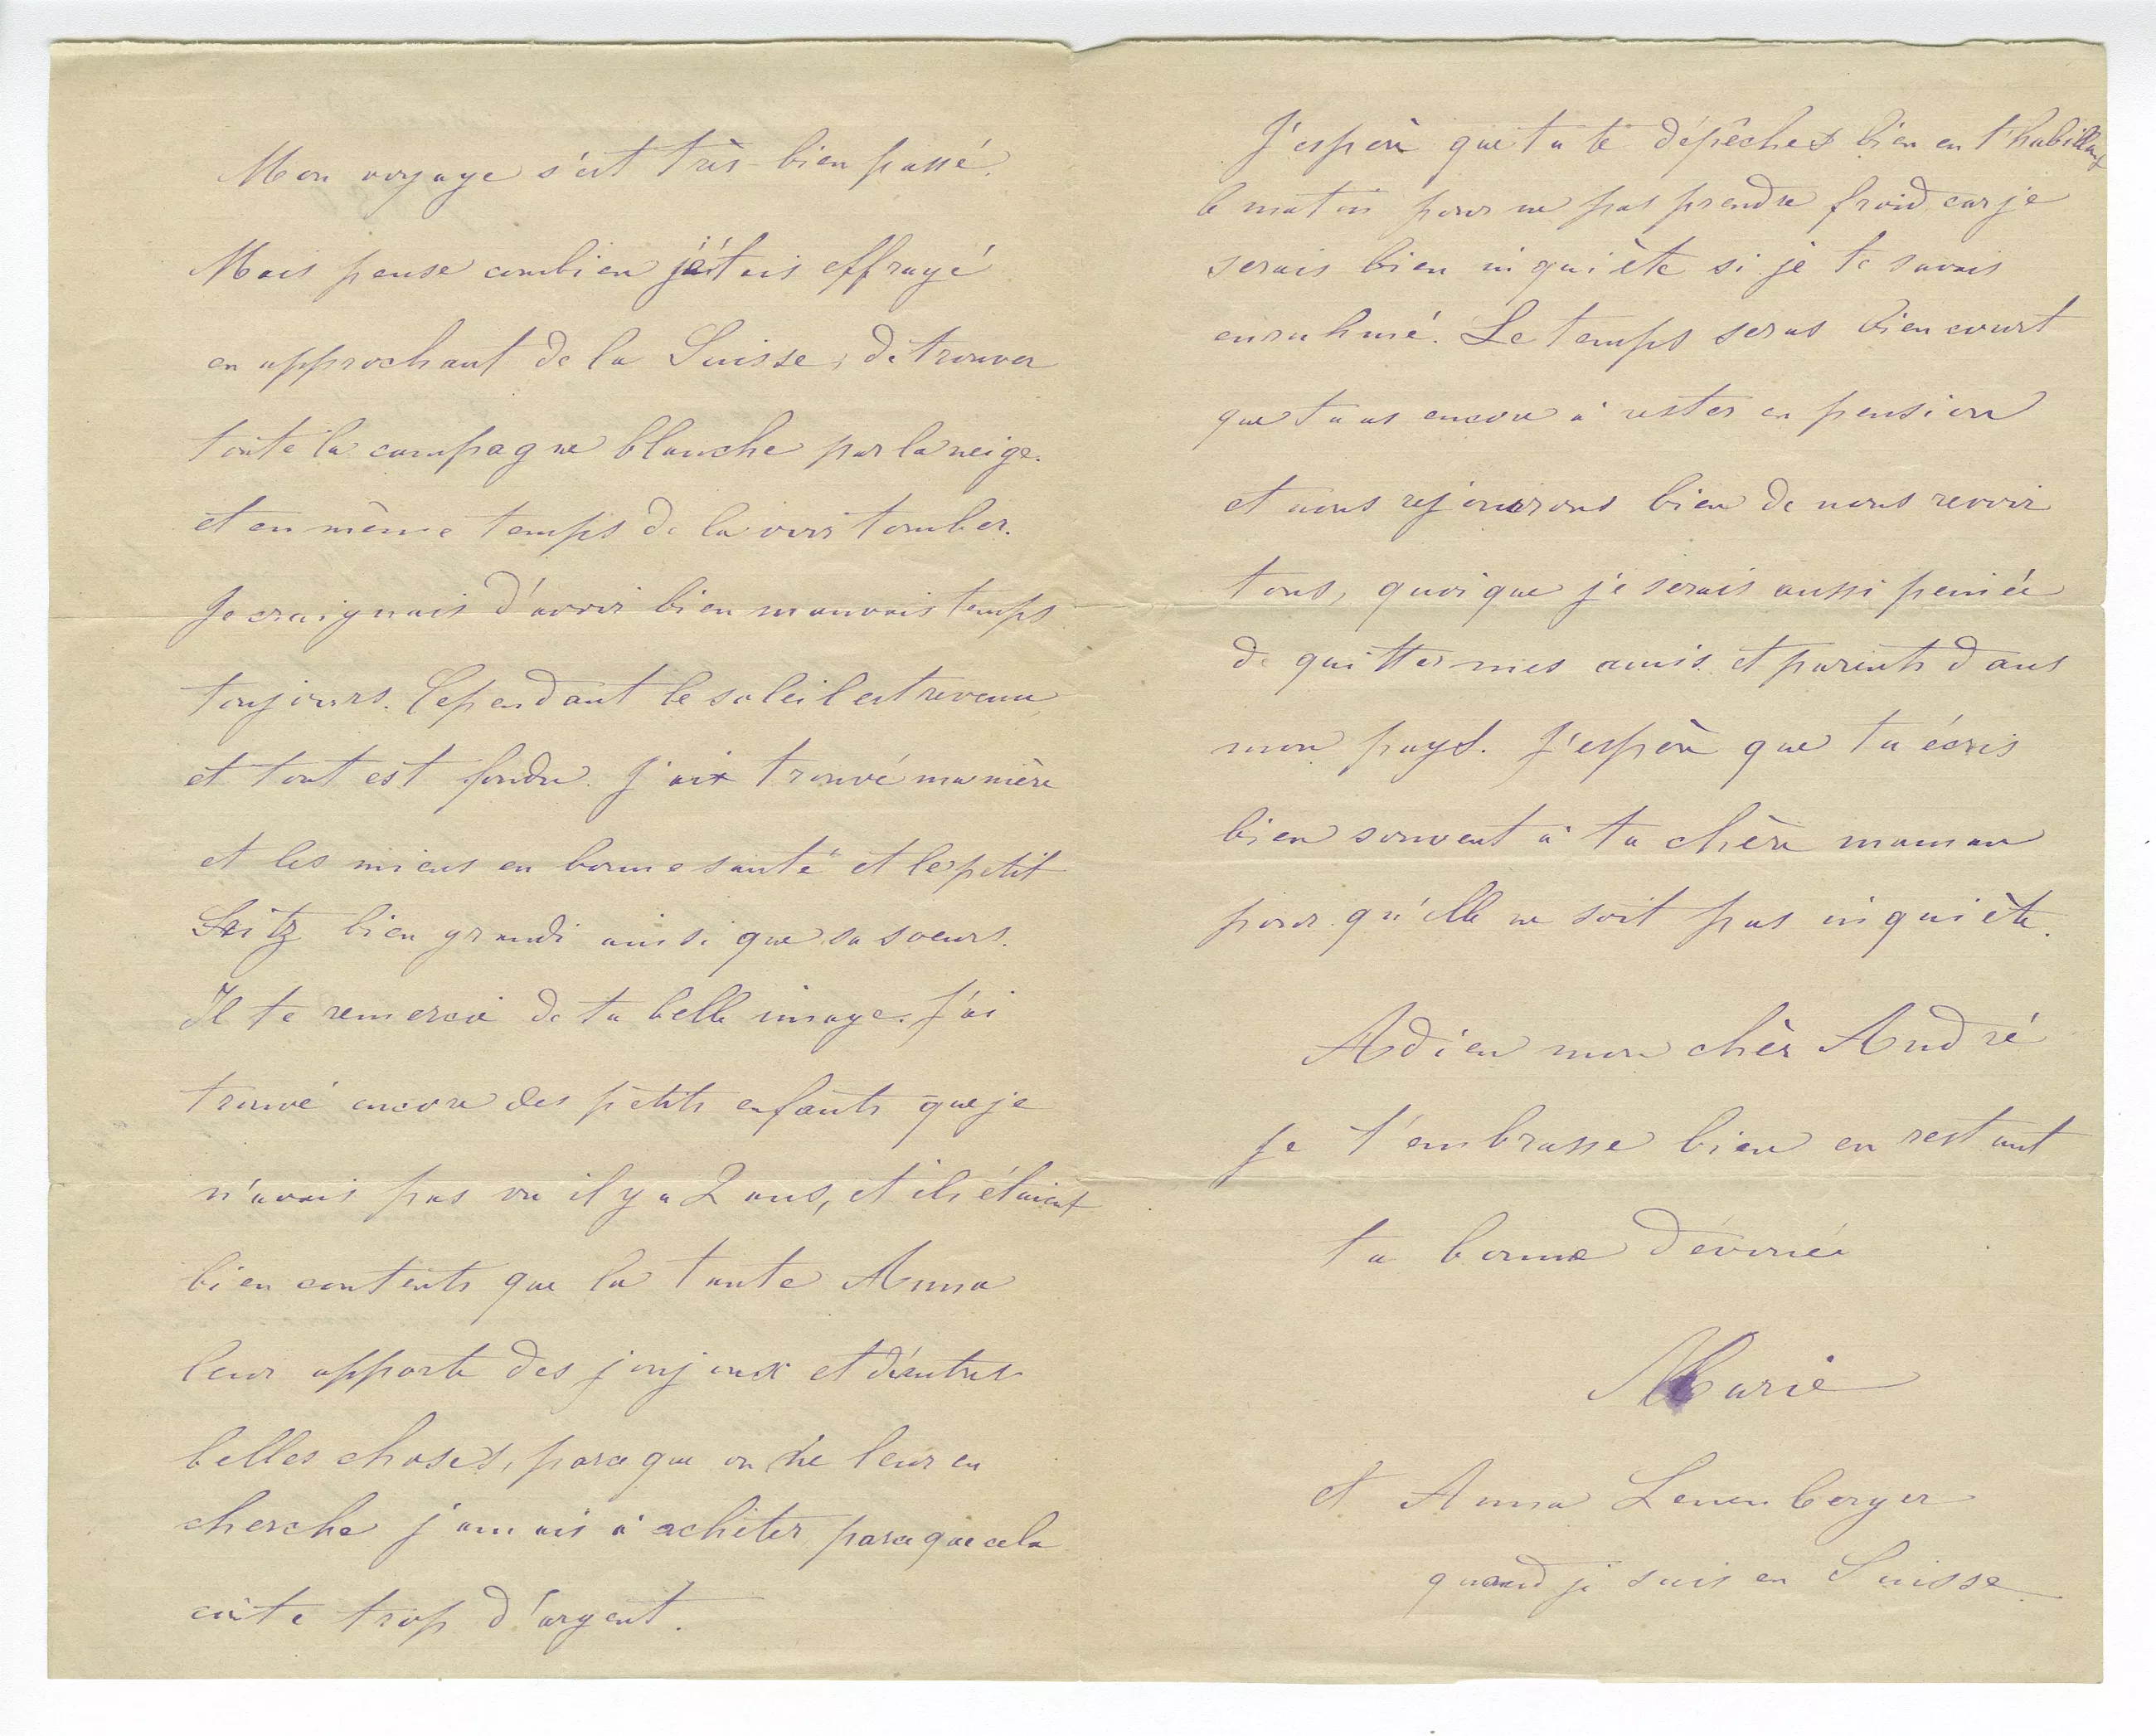 Mon voyage s'est très-bien passé.
Mais pense combien j'étais effrayé
en approchant de la Suisse, de trouver
toute la campagne blanche par la neige.
et en même temps de la voir tomber.
Je craignais d'avoir bien mauvais temps
toujours. Cependant le soleil est revenu,
et tout est fondu. J'ai trouvé ma mère
et les miens en bonne santé et le petit
bien grandi ainsi que sa soeurs.
Il te remercie de ta belle image. J'ai
trouvé encore des petits enfants que je
n'avais pas vu il y a 2 ans, et ils étaient
bien contents que la tante Anna
leur apporte des joujoux et d'autres
belles choses, parce que on ne leur en
cherche jamais à acheter parce que cela
coûte trop d'argent.
J'espère que tu te dépêches bien en t'habillant
le matin pour ne pas prendre froid car je
serais bien inquiète si je te savais
enruhmé. Le temps seras bien court
que tu as encore à rester en pension
et nous rejouirons bien de nous revoir
tous, quoique je serais aussi peinée
de quitter mes amis et parents dans
mon pays. J'espère que tu écris
bien souvent à ta chère maman
pour qu'elle ne soit pas inquiète.
Adieu mon chèr André
Je t'embrasse bien en restant
ta bonne dévouée
Marie
et Anna Leuenberger
quand je suis en Suisse